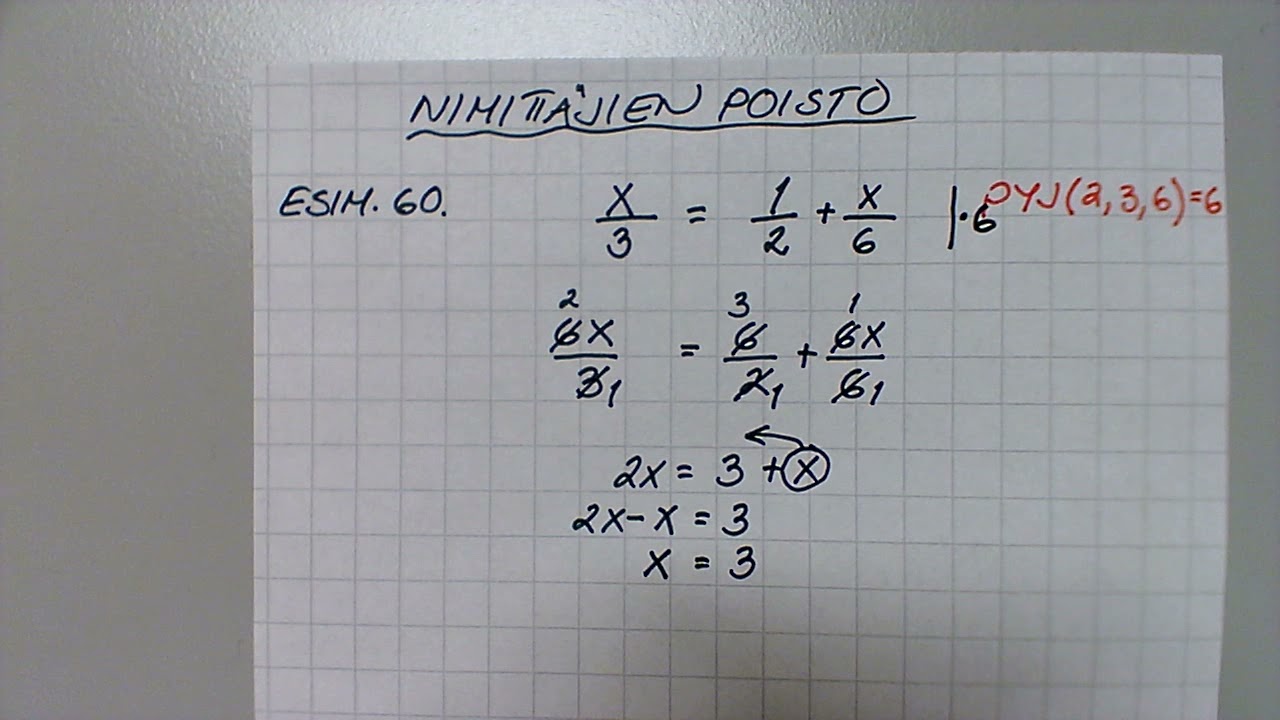 NIMITTÄJIEN POISTO
ESIM. 60. x/3 = 1/2 + x/6 |·6 PYJ(2,3,6)=6
2 3 1
6x/3 1 = 6/2 1 + 6x/6 1
2x = 3 + x
2x - x = 3
x = 3